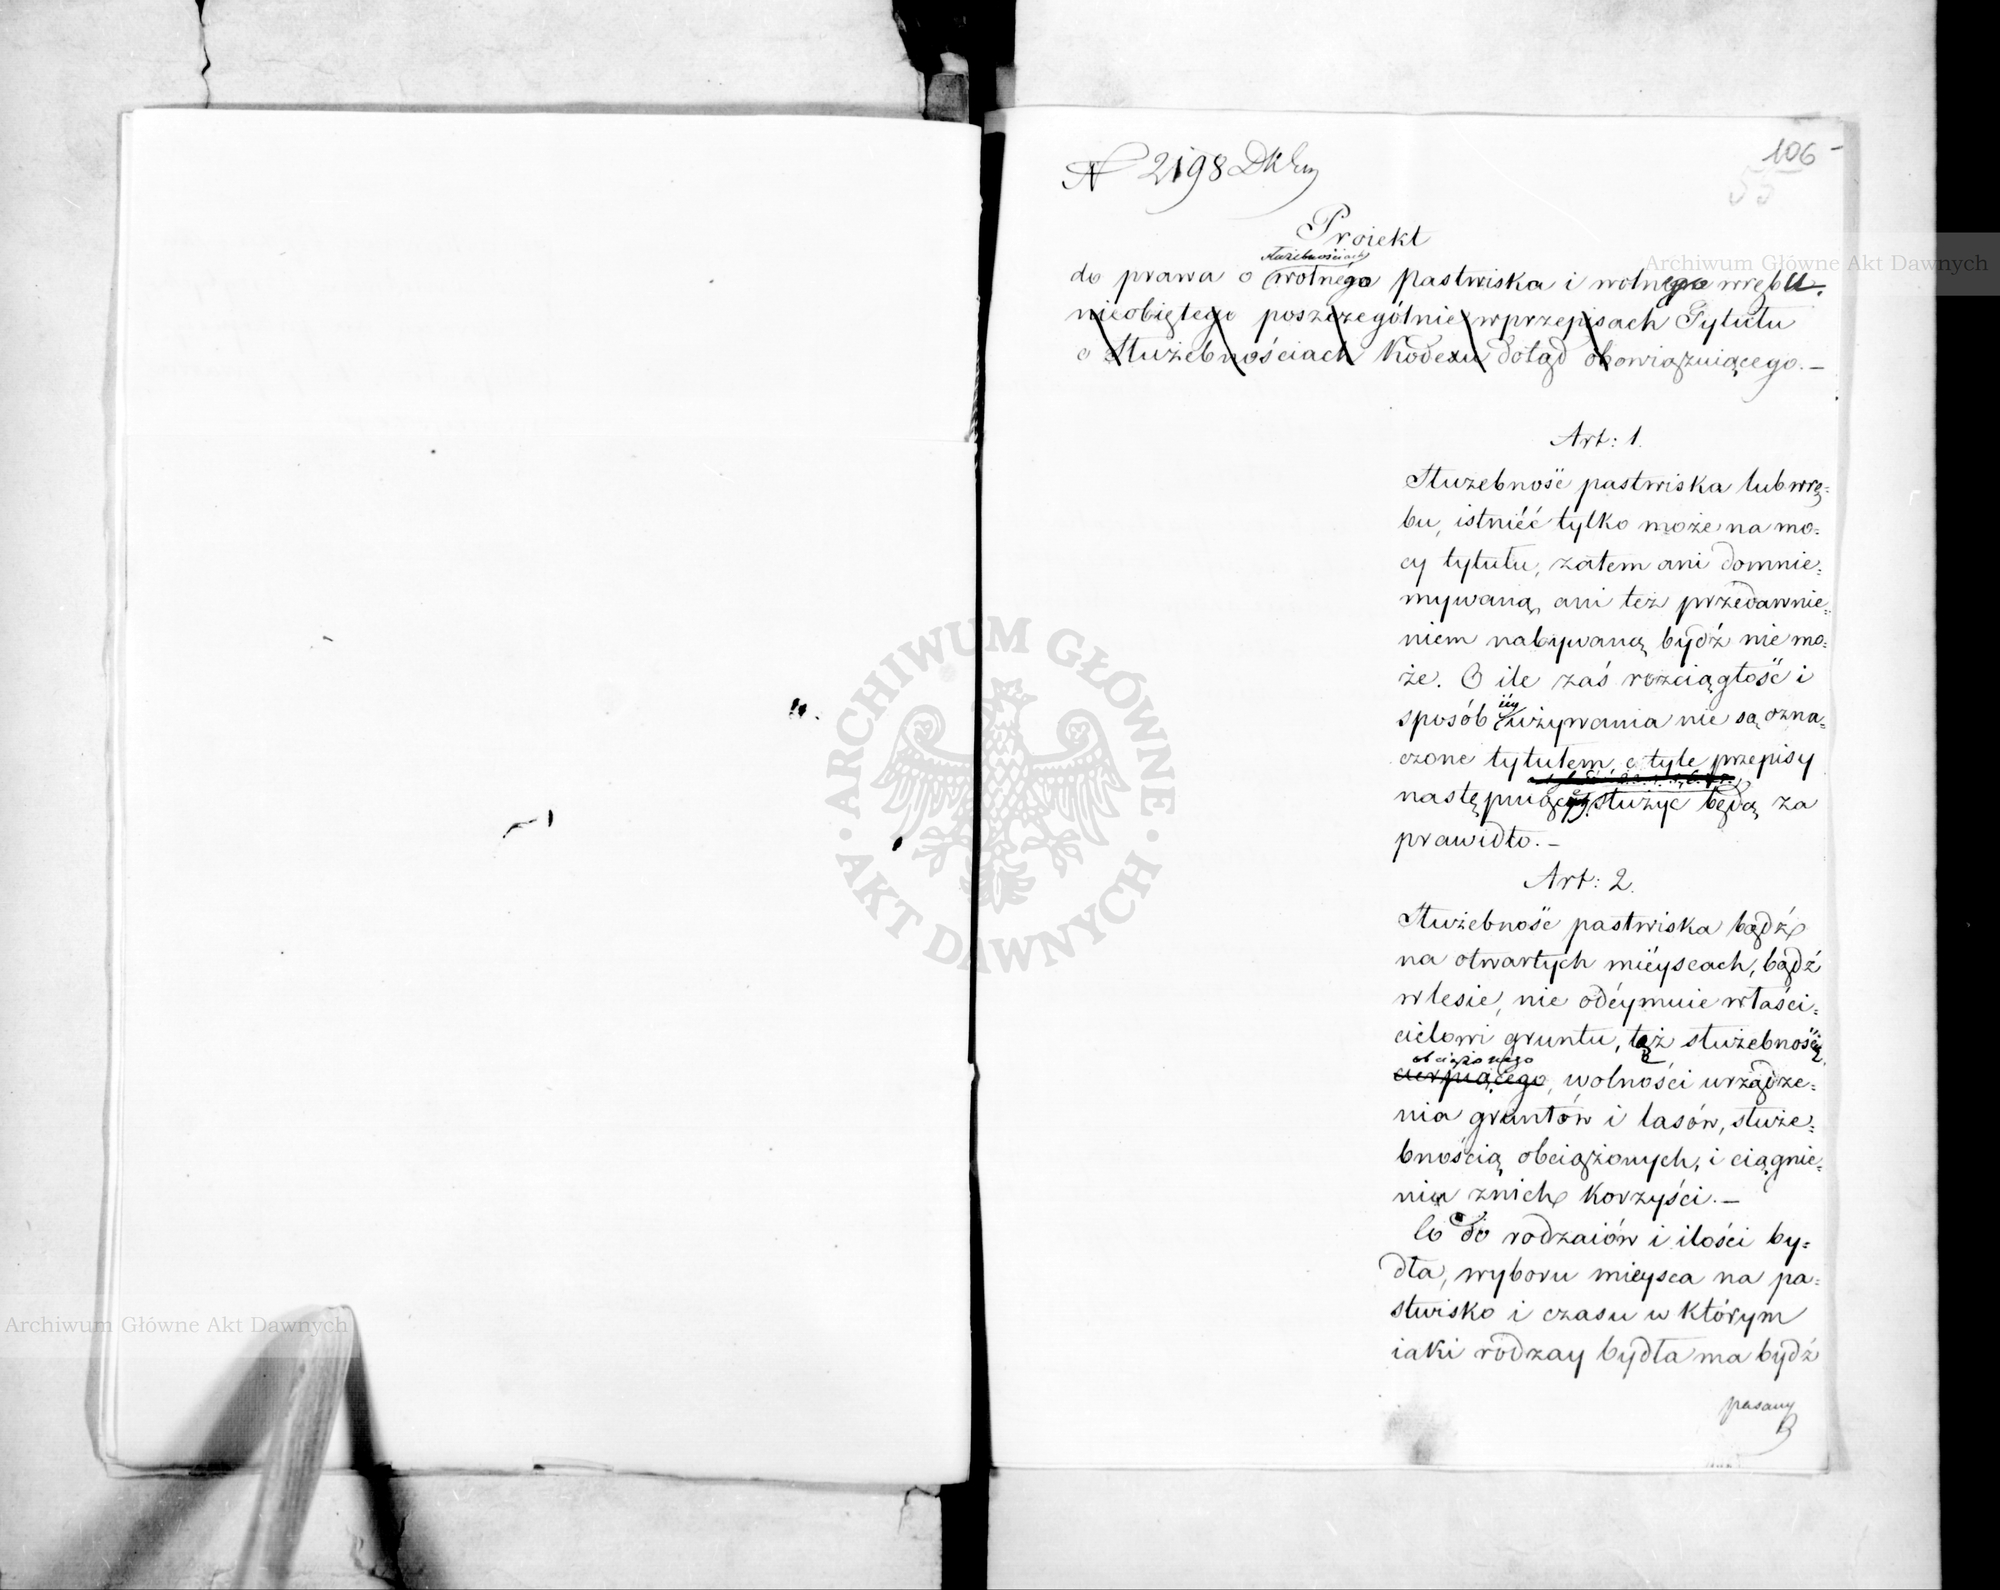 N 2198 DKJ
106
53
Proiekt
służebnościach
do prawa o wolnego pastwiska i wolnego wrębu.
nieobiętego poszczególnie w przepisach Tytułu
o Służebnościach Kodexu dotąd obowiązuiącego. —
Art: 1.
Służebność pastwiska lub wrę=
bu, istniéć tylko może na mo=
cy tytułu, zatem ani domnie=
mywaną, ani też przedawnie=
niem nabywaną bydź nie mo=
że. O ile zaś rozciągłość i
iéy
sposób używania nie są ozna=
czone tytułem, o tyle przepisy
następuiące służyć będą za
prawidło. —
Art: 2.
Służebność pastwiska bądź
na otwartych mieyscach, bądź
w lesie, nie odéymuie właści=
cielowi gruntu, tąż służebnością
obciążonego
cierpiącego, wolności urządze=
nia gruntów i lasów, służe=
bnością obciążonych, i ciągnie=
nia z nich korzyści. —
Co do rodzaiów i ilości by=
dła, wyboru mieysca na pa=
stwisko i czasu w którym
iaki rodzay bydła ma bydź
pasany
ARCHIWUM GŁÓWNE
AKT DAWNYCH
Archiwum Główne Akt Dawnych
Archiwum Główne Akt Dawnych